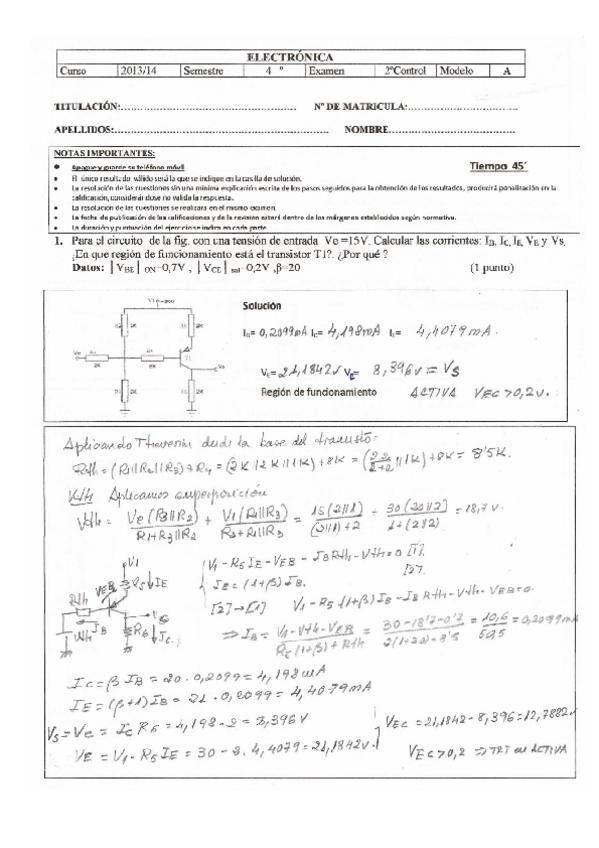 ELECTRÓNICA
Curso 2013/14 Semestre 4 º Examen 2ºControl Modelo A
TITULACIÓN: Nº DE MATRICULA:
APELLIDOS: NOMBRE
NOTAS IMPORTANTES: Tiempo 45´
Apague y guarde su teléfono móvil
El único resultado válido será la que se indique en la casilla de solución.
La resolución de las cuestiones sin una mínima explicación escrita de los pasos seguidos para la obtención de los resultados, producirá penalización en la
calificación, considerándose no valida la respuesta.
La resolución de las cuestiones se realizara en el mismo examen.
La fecha de publicación de las calificaciones y de la revisión estará dentro de los márgenes establecidos según normativa.
La duración y puntuación del ejercicio se indica en cada parte
1. Para el circuito de la fig. con una tensión de entrada Ve =15V. Calcular las corrientes: IB, IC, IE, VE y VS,
¿En que región de funcionamiento está el transistor T1?. ¿Por qué ?
Datos: │VBE│ON=0,7V , │VCE│sat=0,2V ,β=20 (1 punto)
Solución
IB= 0,2099mA IC= 4,198mA IE= 4,4079mA.
VE= 21,1842V VC= 8,396V = VS
Región de funcionamiento ACTIVA VEC>0,2v.
Aplicando Thevenin desde la base del transistor:
Rth = (R1||R2||R3)+R4 = (2K||2K||1K)+8K = (2·2/2+2||1K)+8K = 8'5K.
Vth Aplicamos superposición
Vth = Ve(R3||R2)/R1+R3||R2 + V1(R1||R3)/R2+R1||R3 = 15(2||1)/(2||1)+2 + 30(2||2)/1+(2||2) = 18,7v.
V1 - R5 IE - VEB - IB Rth - Vth = 0 [1].
IE = (1+β) IB. [2].
[2]→[1] V1 - R5 (1+β) IB - IB Rth - Vth - VEB = 0.
⇒ IB = V1-Vth-VEB/R5(1+β)+Rth = 30-18'7-0'7/2(1+20)+8'5 = 10,6/50,5 = 0,2099mA
IC = β IB = 20 · 0,2099 = 4,198mA
IE = (β+1) IB = 21 · 0,2099 = 4,4079mA
VS = VC = IC R6 = 4,198 · 2 = 8,396V
VE = V1 - R5 IE = 30 - 2 · 4,4079 = 21,1842v.
VEC = 21,1842 - 8,396 = 12,7882v
VEC > 0,2 ⇒ TRT en ACTIVA